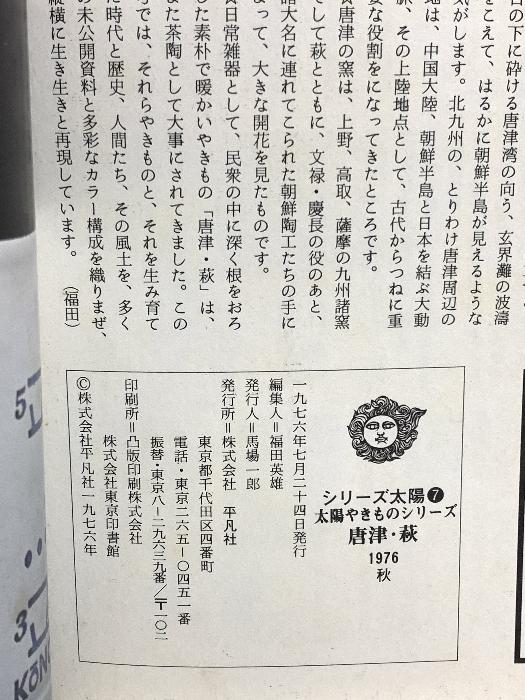 白の下に砕ける唐津湾の向う、玄界灘の波濤
をこえて、はるかに朝鮮半島が見えるような
気がします。北九州の、とりわけ唐津周辺の
地は、中国大陸、朝鮮半島と日本を結ぶ大動
脈、その上陸地点として、古代からつねに重
要な役割をになってきたところです。
唐津の窯は、上野、高取、薩摩の九州諸窯
そして萩とともに、文禄・慶長の役のあと、
諸大名に連れてこられた朝鮮陶工たちの手に
よって、大きな開花を見たものです。
日常雑器として、民衆の中に深く根をおろ
した素朴で暖かいやきもの「唐津・萩」は、
また茶陶として大事にされてきました。この
では、それらやきものと、それを生み育て
た時代と歴史、人間たち、その風土を、多く
の未公開資料と多彩なカラー構成を織りまぜ、
縦横に生き生きと再現しています。（福田）
シリーズ太陽❼
太陽やきものシリーズ
唐津・萩
1976
秋
一九七六年七月二十四日発行
編集人＝福田英雄
発行人＝馬場一郎
発行所＝株式会社 平凡社
東京都千代田区四番町
電話・東京二六五―〇四五一番
振替・東京八―二九六三九番／〒一〇二
印刷所＝凸版印刷株式会社
株式会社東京印書館
©株式会社平凡社一九七六年
5
3
KŌN